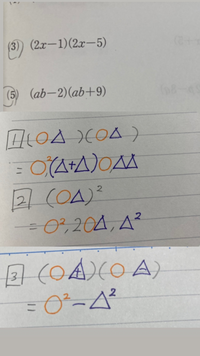 (3) (2x-1)(2x-5)
(5) (ab-2)(ab+9)
1 (○△)(○△)
= ○²(△+△)○△△
2 (○△)²
= ○², 2○△, △²
3 (○+△)(○-△)
= ○²-△²